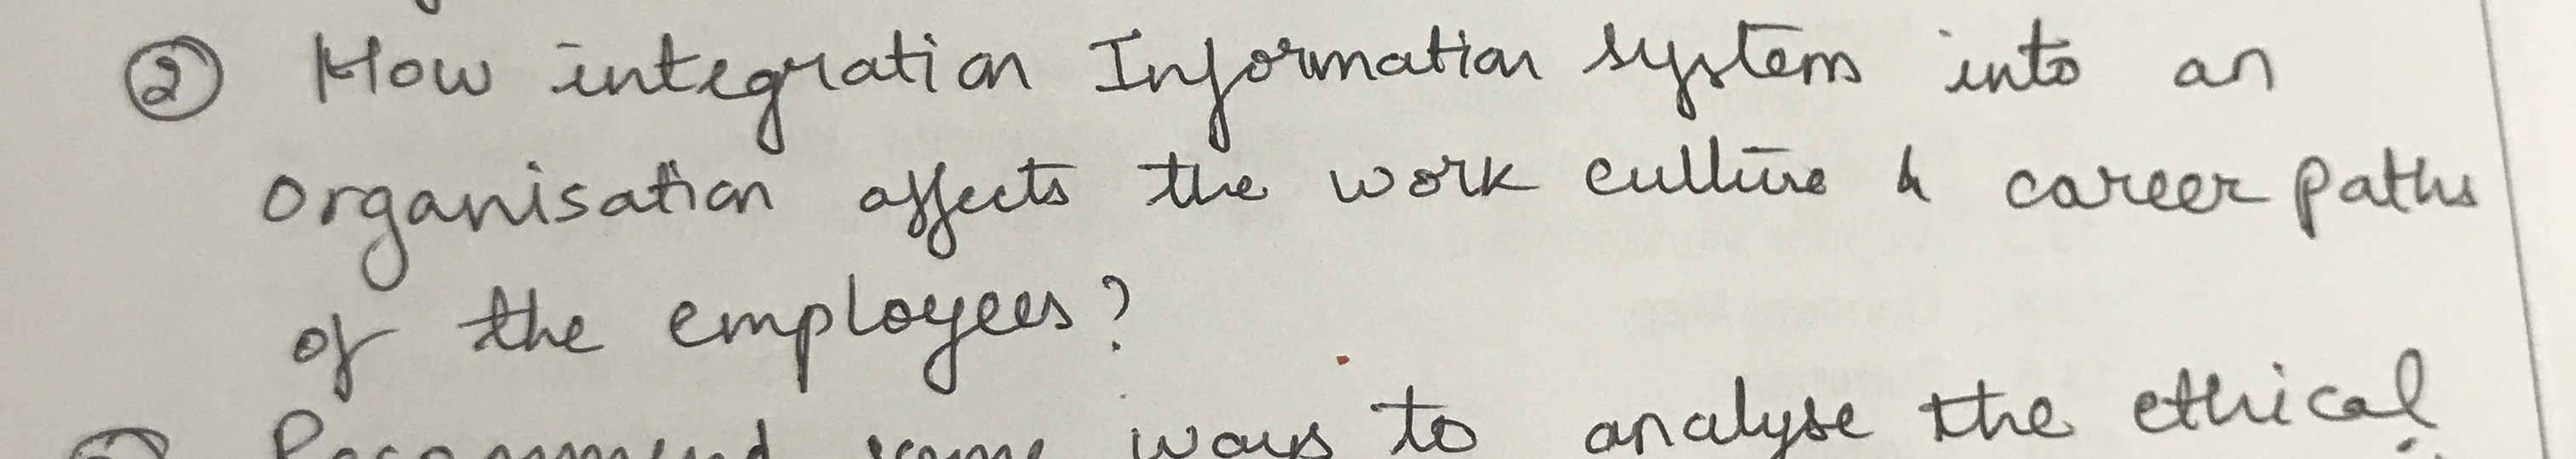 ② How integration Information system into an
organisation affects the work culture & career paths
of the employees?
Recommend some ways to analyse the ethical